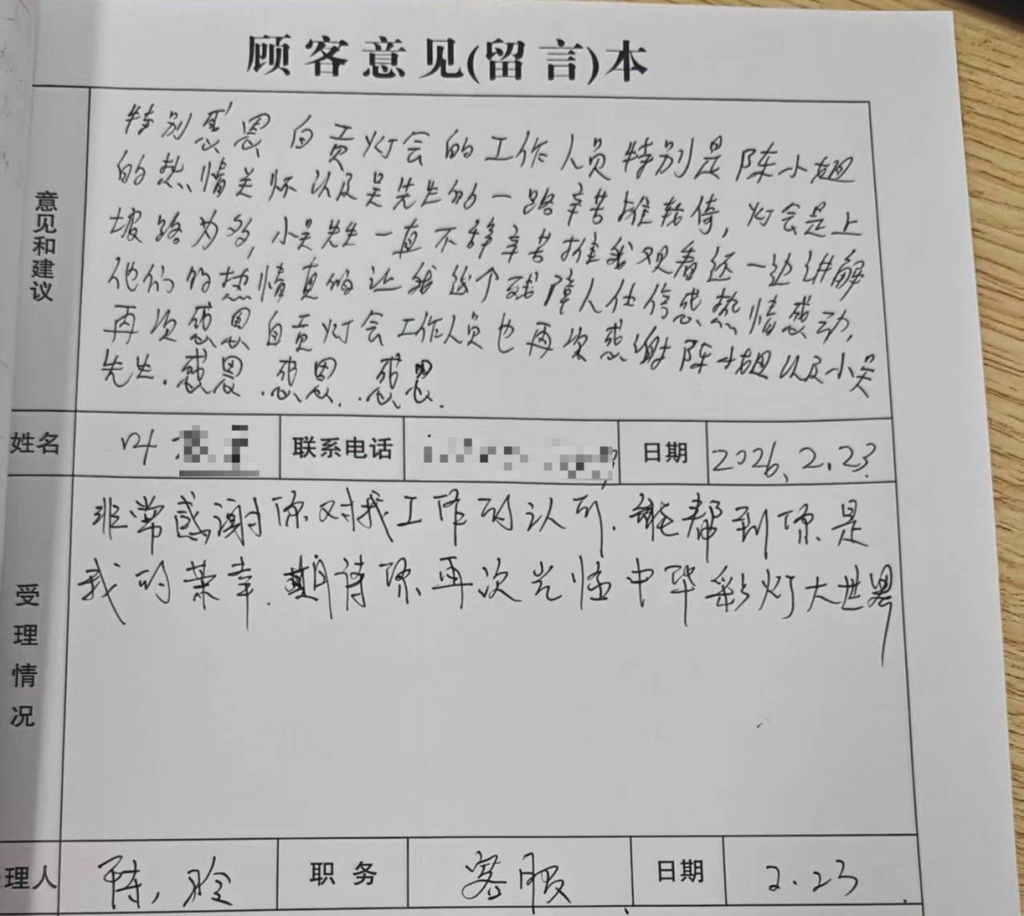 顾客意见(留言)本
意见和建议
特别感恩自贡灯会的工作人员特别是陈小姐
的热情关怀以及吴先生的一路辛苦推轮倚,灯会是上
坡路为多,小吴先生一直不辞辛苦推我观看还一边讲解
他们的热情真的让我这个残障人仕倍感热情感动,
再次感恩自贡灯会工作人员也再次感谢陈小姐以及小吴
先生.感恩.感恩.感恩.
姓名 叶 联系电话 日期 2026.2.23.
受理情况
非常感谢你对我工作的认可.能帮到你是
我的荣幸.期待你再次光临中华彩灯大世界
理人 陈 职务 客服 日期 2.23